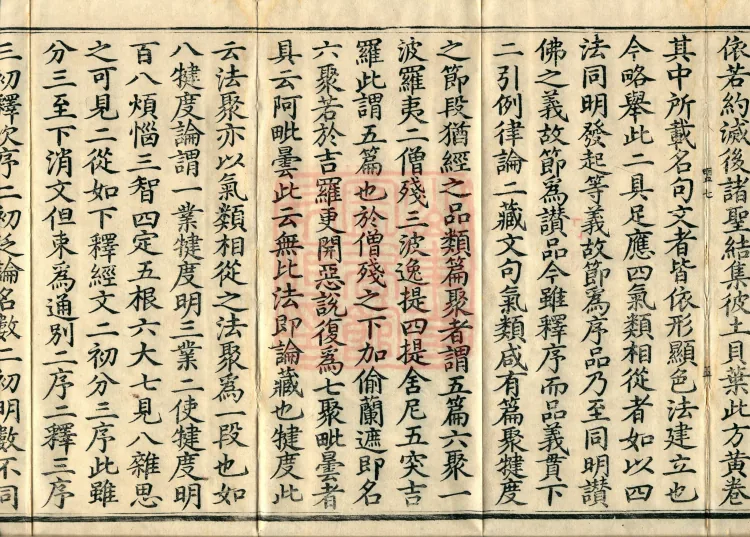 依若約滅後諸聖結集彼土貝葉此方黃卷
其中所載名句文者皆依形顯色法建立也
今略舉此二具足應四氣類相從者如以四
法同明發起等義故節為序品乃至同明讚
佛之義故節為讃品今雖釋序而品義貫下
二引例律論二藏文句氣類咸有篇聚犍度
之節段猶經之品類篇聚者謂五篇六聚一
波羅夷二僧殘三波逸提四提舍尼五突吉
羅此謂五篇也於僧殘之下加偷蘭遮即名
六聚若於吉羅更開惡說復為七聚毗曇者
具云阿毗曇此云無比法即論藏也犍度此
云法聚亦以氣類相從之法聚為一段也如
八犍度論謂一業犍度明三業二使犍度明
百八煩惱三智四定五根六大七見八雜思
之可見二從如下釋經文二初分三序此雖
分三至下消文但束為通別二序二釋三序
三初釋次序二初泛論名數二初明數不同